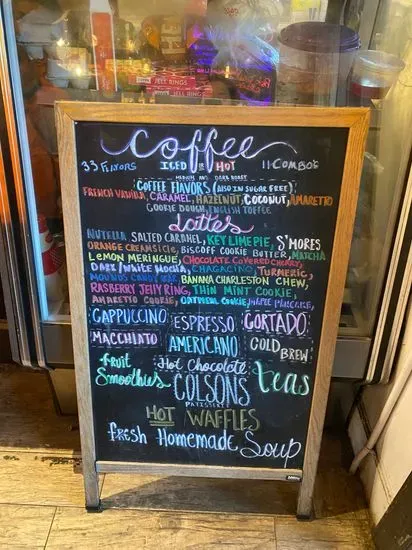 JELL RINGS
JELL RINGS
Coffee
33 FLAVORS ICED OR HOT 11 COMBO'S
MEDIUM AND DARK ROAST
COFFEE FLAVORS (ALSO IN SUGAR FREE)
FRENCH VANILLA, CARAMEL, HAZELNUT, COCONUT, AMARETTO
COOKIE DOUGH, ENGLISH TOFFEE
Lattes
NUTELLA, SALTED CARAMEL, KEY LIME PIE, S'MORES
ORANGE CREAMSICLE, BISCOFF COOKIE BUTTER, MATCHA
LEMON MERINGUE, CHOCOLATE COVERED CHERRY,
DARK/WHITE MOCHA, CHAGACINO, TURMERIC,
MOUNDS CANDY BAR, BANANA CHARLESTON CHEW,
RASBERRY JELLY RING, THIN MINT COOKIE,
AMARETTO COOKIE, OATMEAL COOKIE, MAPLE PANCAKE,
CAPPUCCINO ESPRESSO CORTADO
MACCHIATO AMERICANO COLD BREW
fruit Smoothies Hot Chocolate teas
COLSONS
PATISSERIE
HOT WAFFLES
fresh Homemade Soup